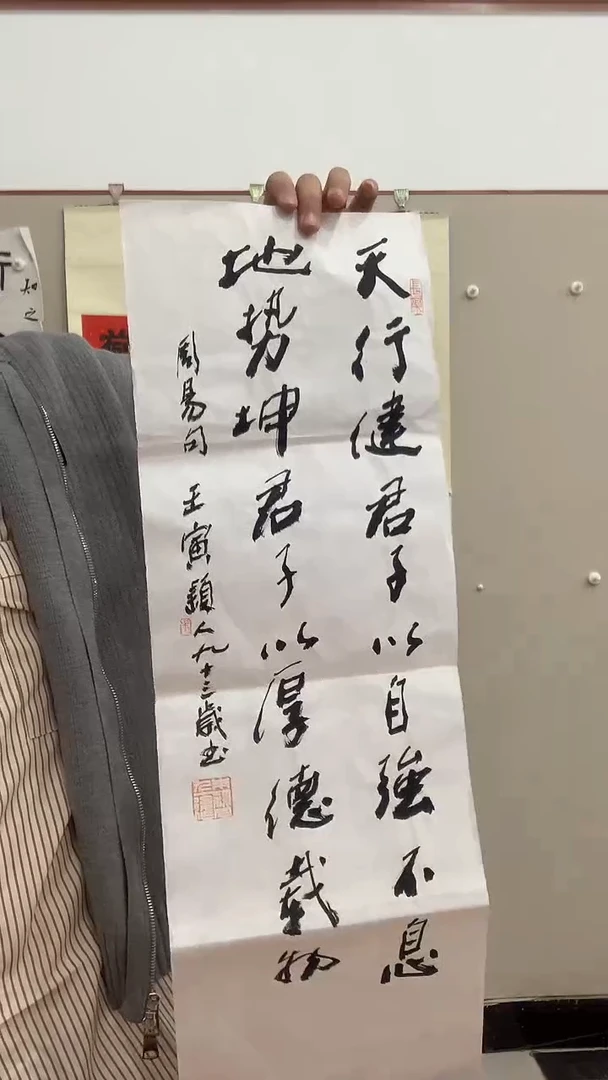 天行健君子以自強不息
地势坤君子以厚德載物
周易句 壬寅 穎人九十三歲书
知之